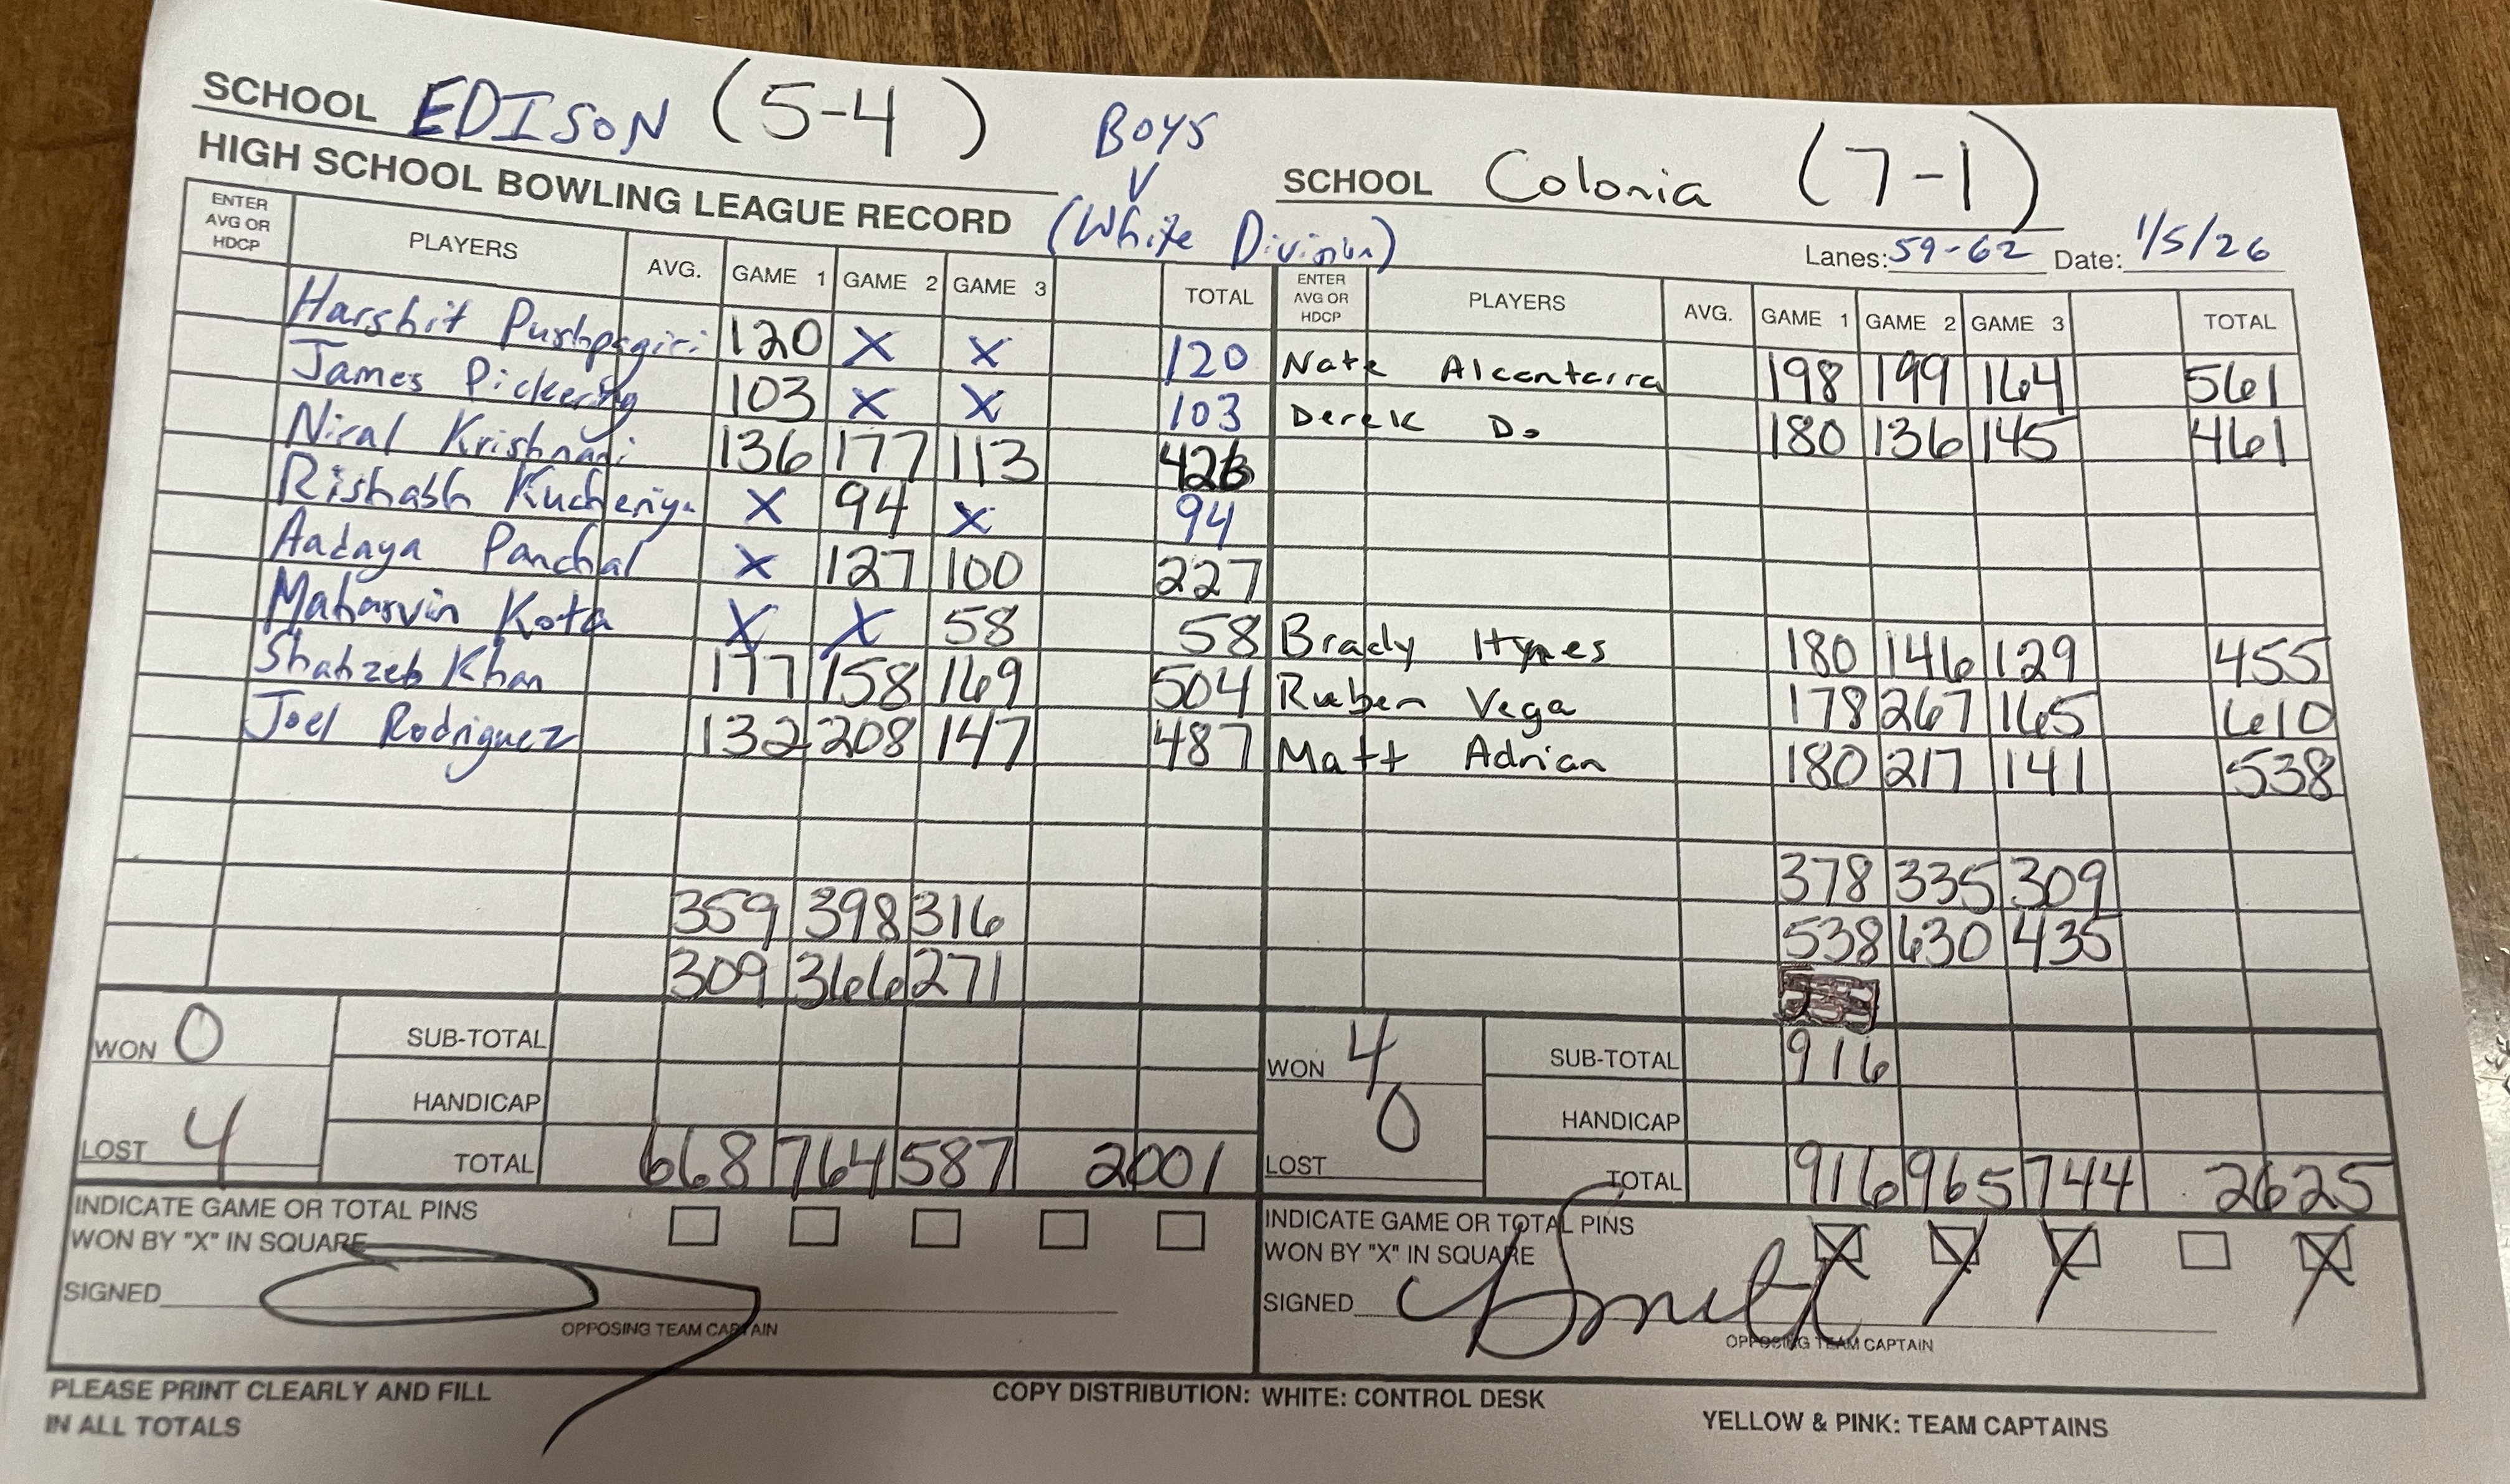 SCHOOL EDISON (5-4)
Boys
SCHOOL Colonia (7-1)
HIGH SCHOOL BOWLING LEAGUE RECORD
(White Division)
Lanes: 59-62 Date: 1/5/26
ENTER AVG OR HDCP PLAYERS AVG. GAME 1 GAME 2 GAME 3 TOTAL
Harshit Pushpagiri 120 X X 120
James Pickering 103 X X 103
Niral Krishnani 136 177 113 426
Rishabh 94 X 94
Aadaya Panchal X 127 100 227
Mahasvin Kota X X 58 58
Shahzeb Khan 177 158 169 504
Joel Rodriguez 132 208 147 487
359 398 316
309 366 271
WON 0
LOST 4
SUB-TOTAL
HANDICAP
TOTAL 668 764 587 2001
INDICATE GAME OR TOTAL PINS
WON BY "X" IN SQUARE
SIGNED
OPPOSING TEAM CAPTAIN
ENTER AVG OR HDCP PLAYERS AVG. GAME 1 GAME 2 GAME 3 TOTAL
Nate Alcantarra 198 199 164 561
Derek Do 180 136 145 461
Brady Hynes 180 146 129 455
Ruben Vega 178 267 165 610
Matt Adrian 180 217 141 538
378 335 309
538 630 435
WON 4
LOST 0
SUB-TOTAL 916
HANDICAP
TOTAL 916 965 744 2625
INDICATE GAME OR TOTAL PINS
WON BY "X" IN SQUARE X X X X
SIGNED
OPPOSING TEAM CAPTAIN
PLEASE PRINT CLEARLY AND FILL
IN ALL TOTALS
COPY DISTRIBUTION: WHITE: CONTROL DESK
YELLOW & PINK: TEAM CAPTAINS